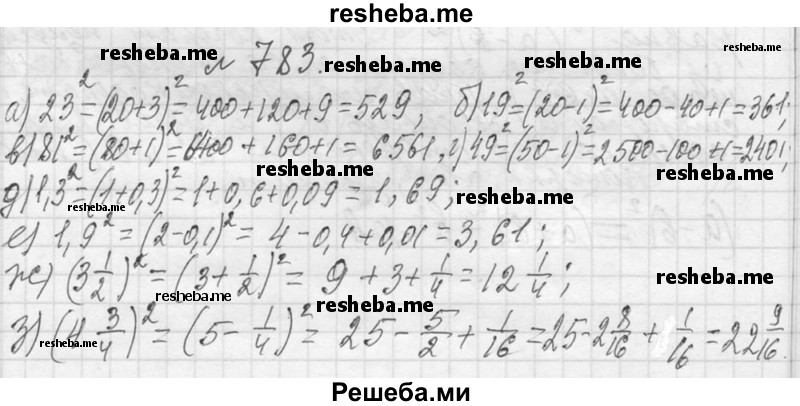 resheba.me
resheba.me № 783. resheba.me resheba.me
а) 23² = (20+3)² = 400+120+9 = 529, б) 19² = (20-1)² = 400-40+1 = 361;
в) 81² = (80+1)² = 6400 + 160+1 = 6561, г) 49² = (50-1)² = 2500-100+1 = 2401;
resheba.me resheba.me
д) 1,3² = (1+0,3)² = 1+0,6+0,09 = 1,69;
resheba.me resheba.me
е) 1,9² = (2-0,1)² = 4-0,4+0,01 = 3,61;
ж) (3 1/2)² = (3+ 1/2)² = 9 + 3 + 1/4 = 12 1/4;
resheba.me resheba.me
з) (4 3/4)² = (5- 1/4)² = 25 - 5/2 + 1/16 = 25-2 8/16 + 1/16 = 22 9/16.
resheba.me resheba.me resheba.me
Решеба.ми